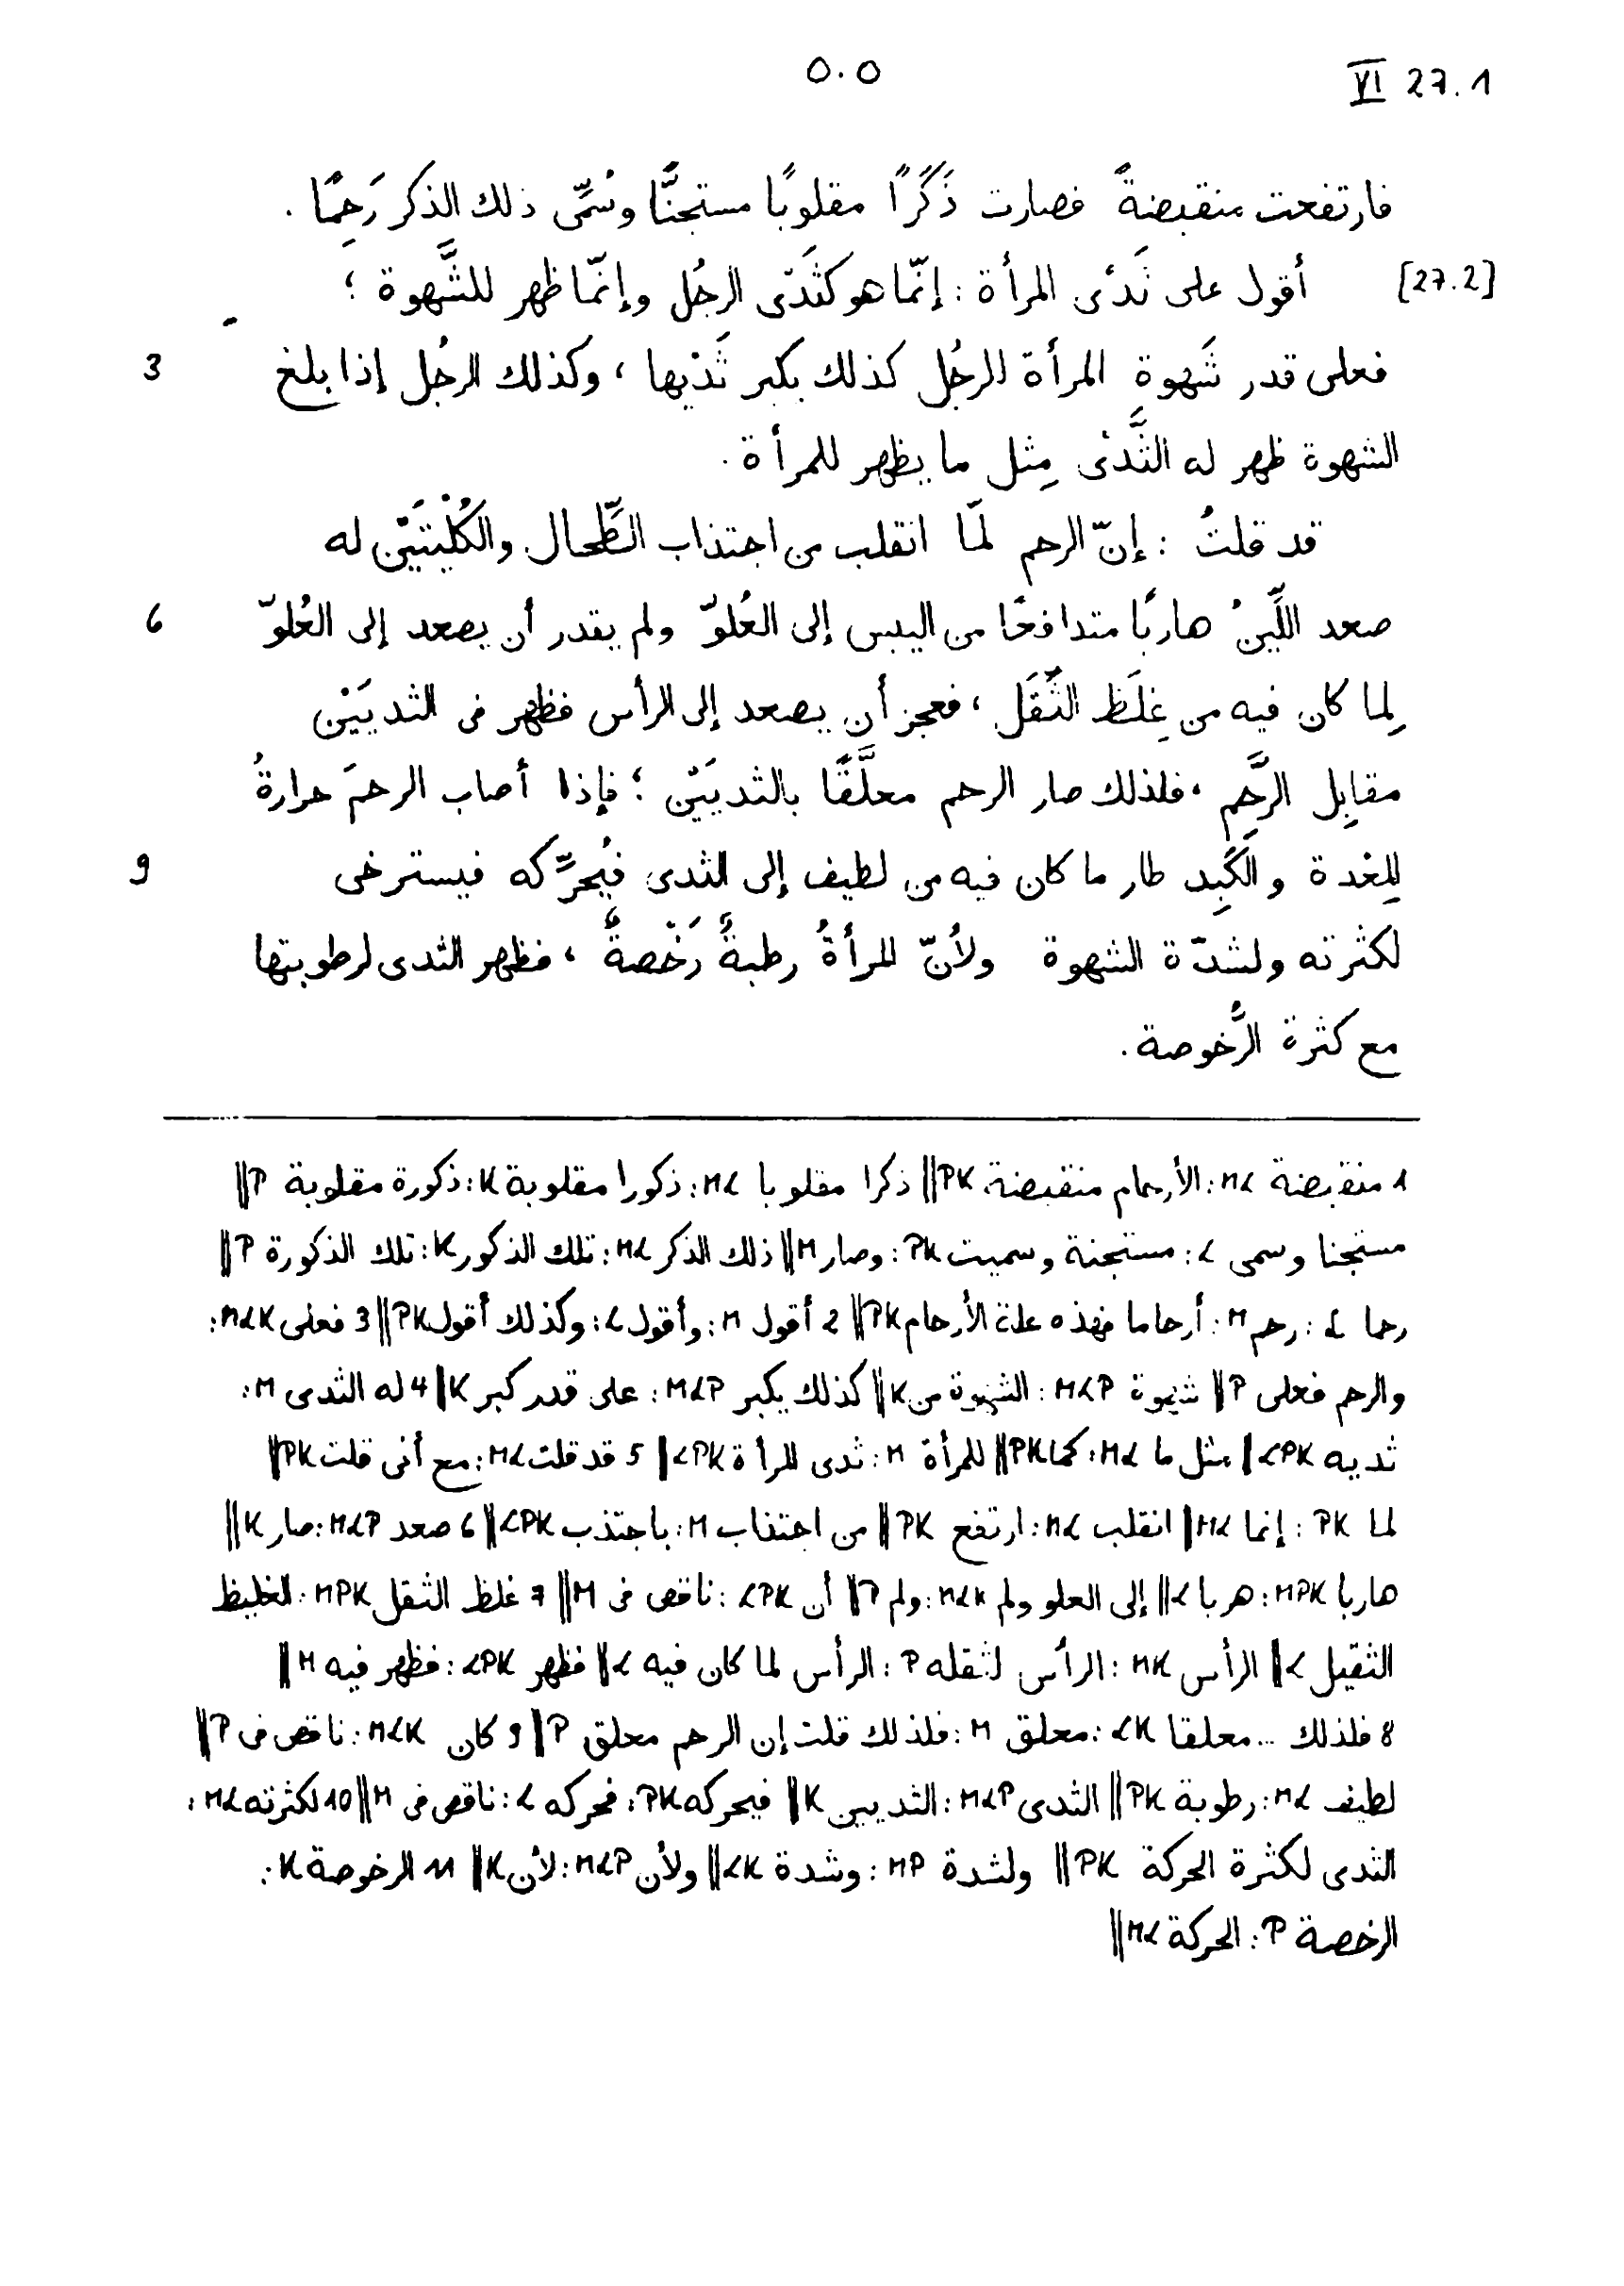 ٥٠٥
VI 27.1
فارتفعت منقبضةً فصارت ذَكَرًا مقلوبًا مستجنًّا وسُمِّى ذلك الذكر رَحِمًا .
[27.2] أقول على ثَدْى المرأة : إنّما هو كثَدْى الرجُل وإنّما ظهر للشَّهوة ؛
3 فعلى قدر شَهوةِ المرأة للرجُل كذلك يكبر ثَدْيها ، وكذلك الرجُل إذا بلغ
الشهوة ظهر له الثَّدْى مِثل ما يظهر للمرأة .
قد قلتُ : إنّ الرحم لمّا انقلب من اجتذاب الطِّحال والكُلْيتَيْن له
6 صعد اللَّيِّنُ هاربًا متدافعًا من اليبس إلى العُلوّ ولم يقدر أن يصعد إلى العُلوّ
لِما كان فيه من غِلَظ الثِّقَل ، فعجز أن يصعد إلى الرأس فظهر فى الثديَيْن
مقابِل الرَّحِم ، فلذلك صار الرحم معلَّقًا بالثديَيْن ؛ فإذا أصاب الرحمَ حرارةُ
9 لِلمعْدة والكَبِد طار ما كان فيه من لطيف إلى الثدى فيُحرِّكه فيسترخى
لكثرته ولشدّة الشهوة ولأنّ المرأةُ رطبةٌ رَخْصةٌ ، فظهر الثدى لرطوبتها
مع كثرة الرُّخوصة .
1 منقبضة ML : الأرحام منقبضة PK || ذكرا مقلوبا ML : ذكورا مقلوبة K : ذكورة مقلوبة P ||
مستجنا وسمى L : مستجنة وسميت PK : وصار M || ذلك الذكر ML : تلك الذكور K : تلك الذكورة P ||
رحما L : رحم M : أرحاما فهذه علة الأرحام PK || 2 أقول M : وأقول L : وكذلك أقول PK || 3 فعلى MLK :
والرحم فعلى P || شهوة MLP : الشهوة من K || كذلك يكبر MLP : على قدر كبر K || 4 له الثدى M :
ثديه LPK || مثل ما ML : كما PK || للمرأة M : ثدى المرأة LPK || 5 قد قلت ML : مع أنى قلت PK ||
لما PK : إنما ML || انقلب ML : ارتفع PK || من اجتذاب M : باجتذب LPK || 6 صعد MLP : صار K ||
هاربا MPK : هربا L || إلى العلو ولم MLK : ولم P || أن LPK : ناقص فى M || 7 غلظ الثقل MPK : الغليظ
الثقيل L || الرأس MK : الرأس لثقله P : الرأس لما كان فيه L || فظهر LPK : فظهر فيه M ||
8 فلذلك ... معلقا LK : معلق M : فلذلك قلت إن الرحم معلق P || 9 كان MLK : ناقص فى P ||
لطيف ML : رطوبة PK || الثدى MLP : الثديين K || فيحركه PK : فحركه L : ناقص فى M || 10 لكثرته ML :
الثدى لكثرة الحركة PK || ولشدة MP : وشدة LK || ولأن MLP : لأن K || 11 الرخوصة K :
الرخصة P : الحركة ML ||